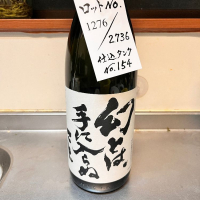 ロットNo.
1276
/2736
仕込タンク
No.154
幻とは、
手に入らぬ